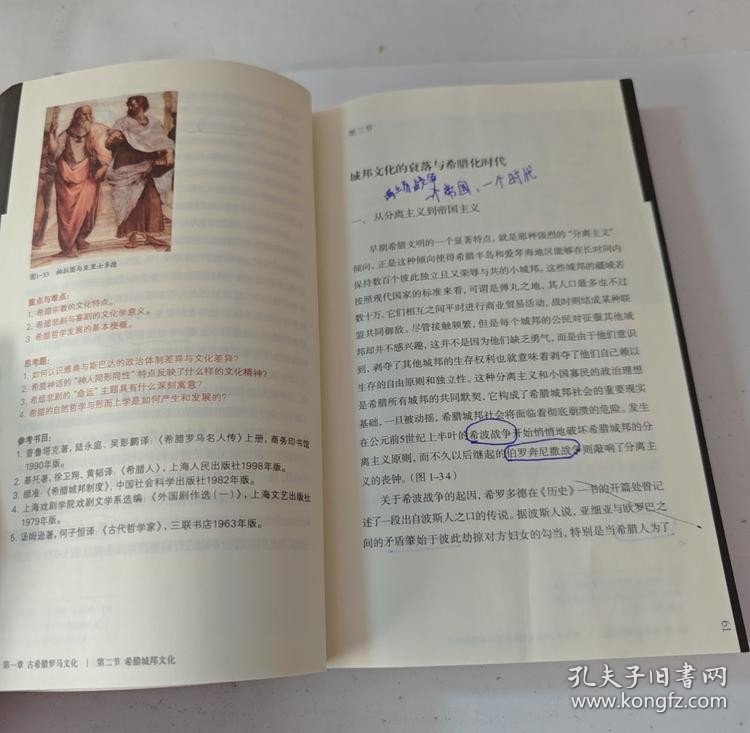 图1-33 柏拉图与亚里士多德
重点与难点:
1. 希腊宗教的文化特点。
2. 希腊悲剧与喜剧的文化学意义。
3. 希腊哲学发展的基本梗概。
思考题:
1. 如何认识雅典与斯巴达的政治体制差异与文化差异?
2. 希腊神话的“神人同形同性”特点反映了什么样的文化精神?
3. 希腊悲剧的“命运”主题具有什么深刻寓意?
4. 希腊的自然哲学与形而上学是如何产生和发展的?
参考书目:
1. 普鲁塔克著,陆永庭、吴彭鹏译:《希腊罗马名人传》上册,商务印书馆
1990年版。
2. 基托著,徐卫翔、黄韬译:《希腊人》,上海人民出版社1998年版。
3. 顾准:《希腊城邦制度》,中国社会科学出版社1982年版。
4. 上海戏剧学院戏剧文学系选编:《外国剧作选(一)》,上海文艺出版社
1979年版。
5. 汤姆逊著,何子恒译:《古代哲学家》,三联书店1963年版。
第一章 古希腊罗马文化 | 第二节 希腊城邦文化
第三节
城邦文化的衰落与希腊化时代
一个帝国,一个时代
一、从分离主义到帝国主义
早期希腊文明的一个显著特点,就是那种强烈的“分离主义”
倾向。正是这种倾向使得希腊半岛和爱琴海地区能够在长时间内
保持数百个彼此独立且又荣辱与共的小城邦。这些城邦的疆域若
按照现代国家的标准来看,可谓是弹丸之地,其人口最多也不过
数十万。它们相互之间平时进行商业贸易活动,战时则结成某种联
盟共同御敌。尽管接触频繁,但是每个城邦的公民对征服其他城
邦却并不感兴趣,这并不是因为他们缺乏勇气,而是由于他们意识
到,剥夺了其他城邦的生存权利也就意味着剥夺了他们自己赖以
生存的自由原则和独立性。这种分离主义和小国寡民的政治理想
是希腊所有城邦的共同默契,它构成了希腊城邦社会的重要现实
基础,一旦被动摇,希腊城邦社会将面临着彻底崩溃的危险。发生
在公元前5世纪上半叶的希波战争开始悄悄地破坏希腊城邦的分
离主义原则,而不久以后继起的伯罗奔尼撒战争则敲响了分离主
义的丧钟。(图1-34)
关于希波战争的起因,希罗多德在《历史》一书的开篇处曾记
述了一段出自波斯人之口的传说。据波斯人说,亚细亚与欧罗巴之
间的矛盾肇始于彼此劫掠对方妇女的勾当,特别是当希腊人为了
61
孔夫子旧书网
www.kongfz.com